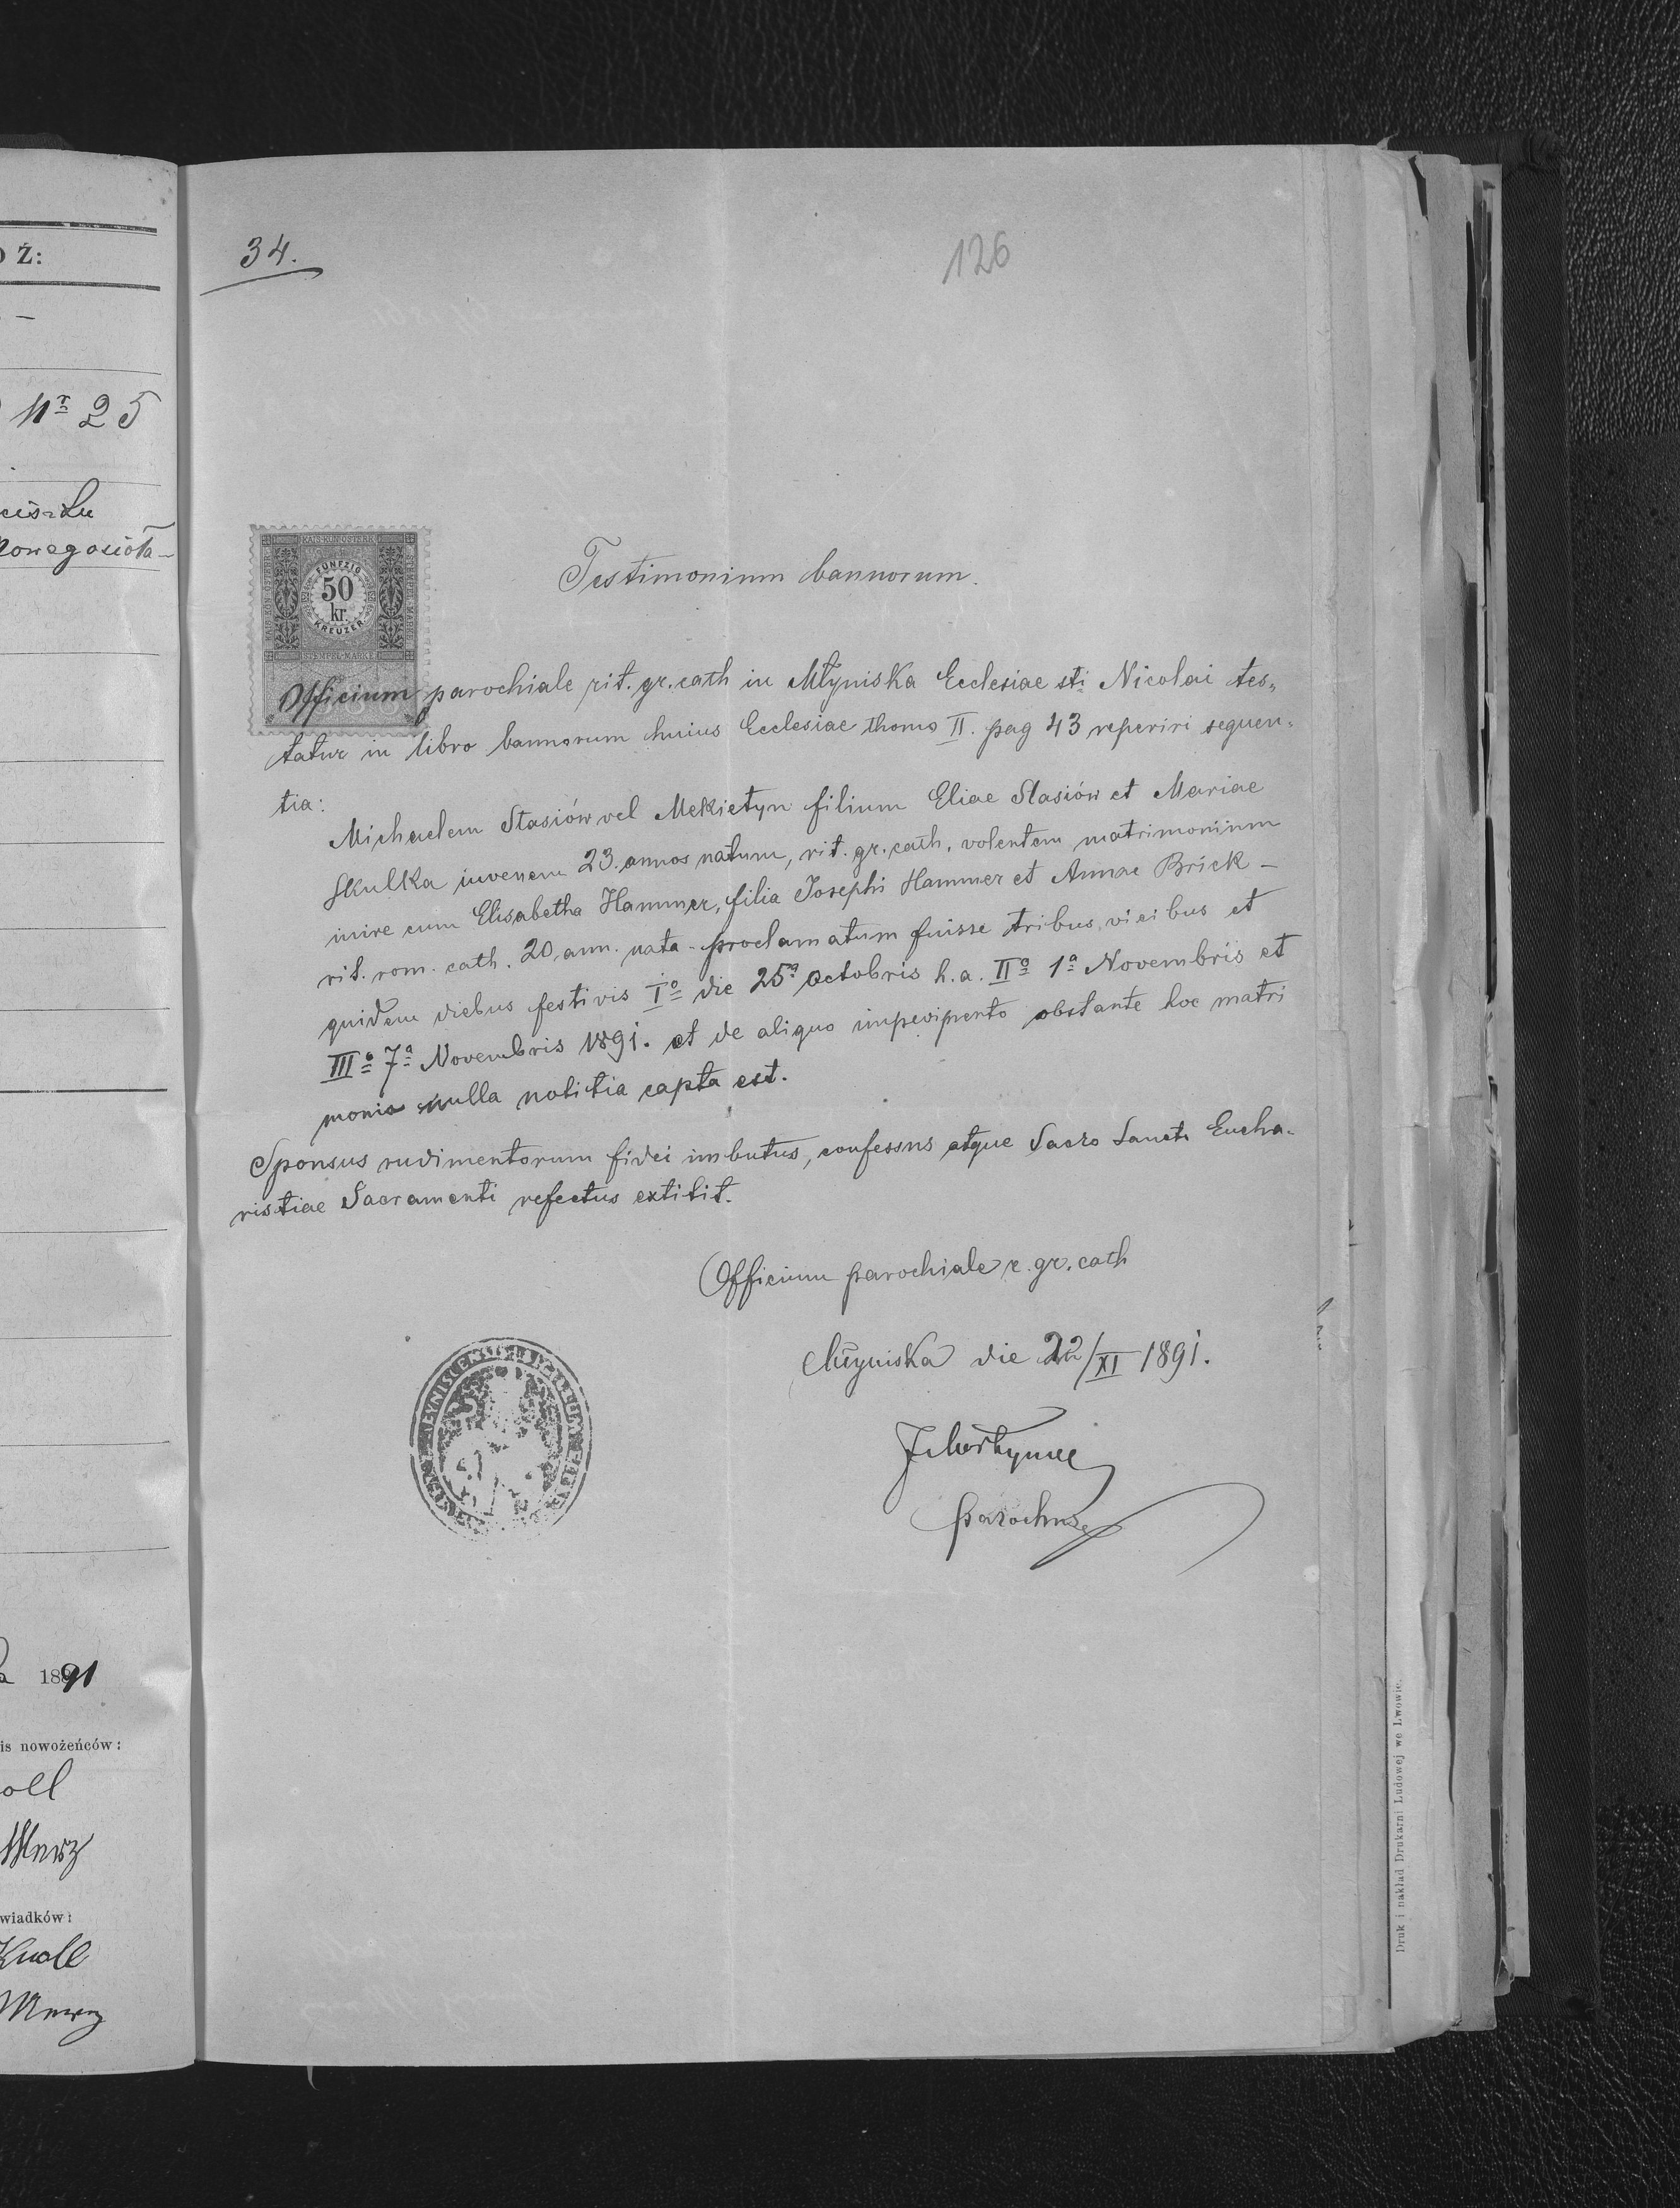 Ż:
Nr 25
1891
is nowożeńców:
oll
Merz
wiadków:
Knoll
34.
126
KAIS. KÖN. ÖSTERR.
STEMPEL-MARKE
FÜNFZIG
50
kr.
KREUZER
STEMPEL-MARKE
Testimonium bannorum.
Officium parochiale rit. gr. cath in Młyniska Ecclesiae sti Nicolai tes„
tatur in libro bannorum huius Ecclesiae thomo II. pag 43 reperiri sequen„
tia:
Michaelem Stasiów vel Mekietyn filium Eliae Stasiów et Mariae
Skulka iuvenem 23. annos natum, rit. gr. cath, volentem matrimonium
inire cum Elisabetha Hammer, filia Josephi Hammer et Annae Brick –
rit. rom. cath. 20, ann. nata - proclamatum fuisse tribus, vicibus et
quidem diebus festivis Io die 25a Octobris h. a. IIo 1a Novembris et
IIIo 7a Novembris 1891. et de aliquo impedimento obstante hoc matri
monio nulla notitia capta est.
Sponsus rudimentorum fidei imbutus, confessus atque Sacro Sancti Eucha„
ristiae Sacramenti refectus extitit.
Officium parochiale r. gr. cath
Młyniska die 22/XI 1891.
parochus
Druk i nakład Drukarni Ludowej we Lwowie.